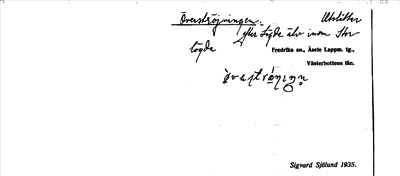 Överströjningen. Utslåtter
efter Lögda älv inom Stor
lögda Fredrika sn., Åsele Lappm. tg.,
Västerbottens län.
Sigvard Sjölund 1935.